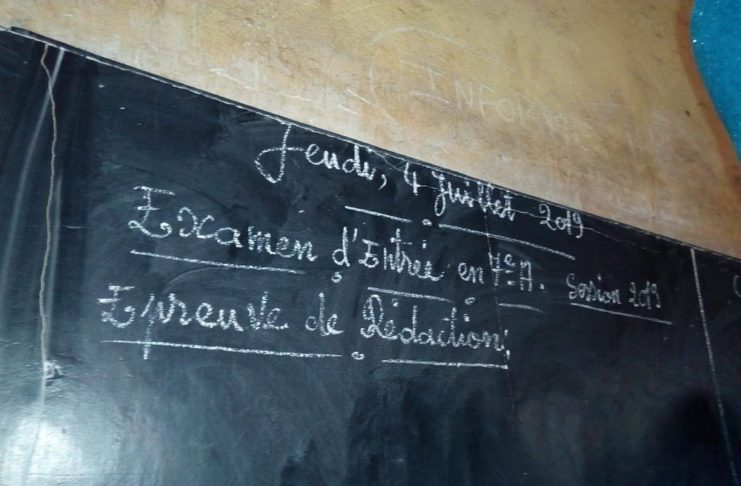 Jeudi, 4 Juillet 2019
Examen d'Entrée en 7e A. Session 2019
Epreuve de Rédaction: